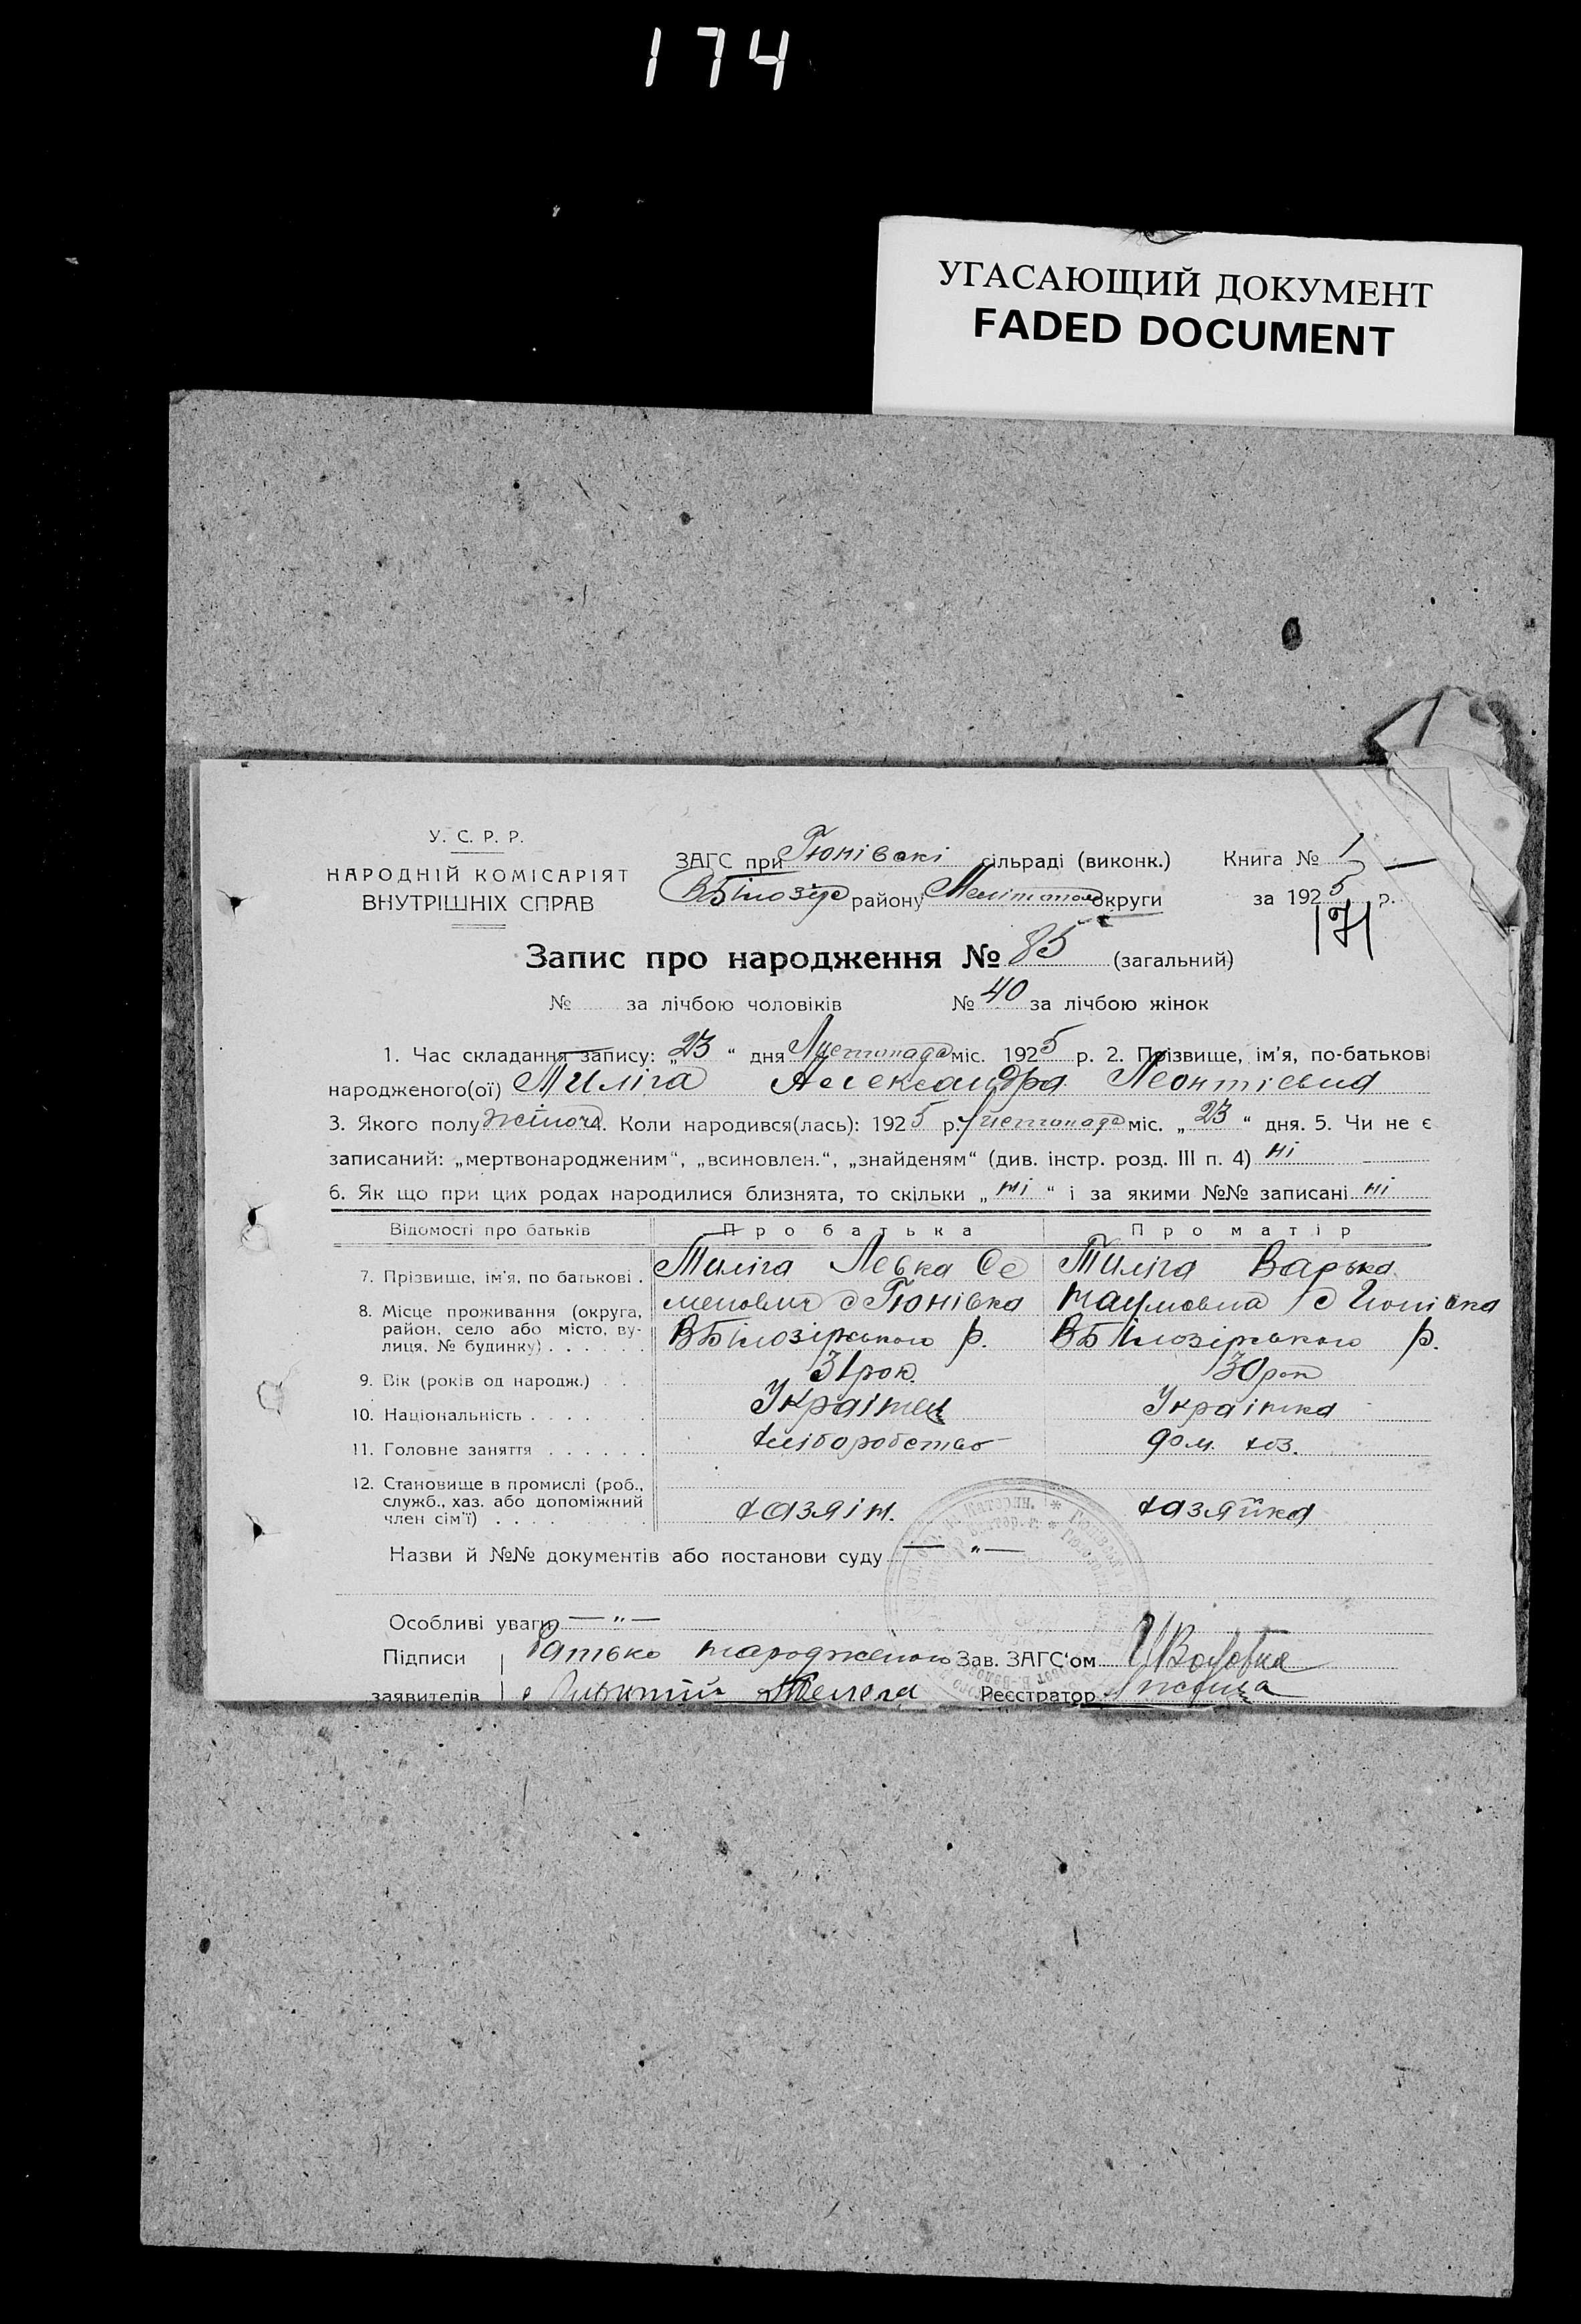 174
УГАСАЮЩИЙ ДОКУМЕНТ
FADED DOCUMENT
У. С. Р. Р.
НАРОДНІЙ КОМІСАРІЯТ
ВНУТРІШНІХ СПРАВ
ЗАГС при Гюнівскі сільраді (виконк.) Книга № 1
ВБілозір району Мелітопол округи за 1925 р.
171
Запис про народження № 85 (загальний)
№ за лічбою чоловіків № 40 за лічбою жінок
1. Час складання запису: „23“ дня Листопада міс. 1925 р. 2. Прізвище, ім'я, по-батькові
народженого(ої) Тиліга Александра Леонтієвна
3. Якого полу жіноч 4. Коли народився(лась): 1925 р. Листопада міс. „23“ дня. 5. Чи не є
записаний: „мертвонародженим“, „всиновлен.“, „знайденям“ (див. інстр. розд. III п. 4) ні
6. Як що при цих родах народилися близнята, то скільки „ні“ і за якими №№ записані ні
Відомості про батьків Про батька Про матір
7. Прізвище, ім'я, по батькові. Тиліга Левка Се Тиліга Варька
8. Місце проживання (округа, менович с Гюнівка Наумовна с Гюнівка
район, село або місто, ву-
лиця, № будинку) ВБілозірського р. ВБілозірського р.
9. Вік (років од народж.) 31 рок. 30 рок
10. Національність Українец Українка
11. Головне заняття хліборобство дом. хоз.
12. Становище в промислі (роб.,
служб., хаз. або допоміжний
член сім'ї) хазяін. хазяйка
Назви й №№ документів або постанови суду — „ —
Особливі уваги — „ —
Підписи Батько народженого Зав. ЗАГС'ом
заявителів Реєстратор